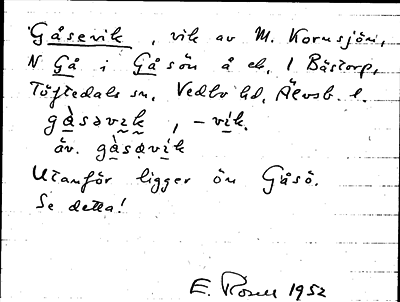 Gåsevik, vik av M. Kornsjön,
N Gå i Gåsön å ek. 1 Bästorp,
Töftedals sn, Vedbo hd, Älvsb. l.
gàsəvik, -vik.
äv. gàsavik
Utanför ligger ön Gåsö.
Se detta!
E. Rosell 1952